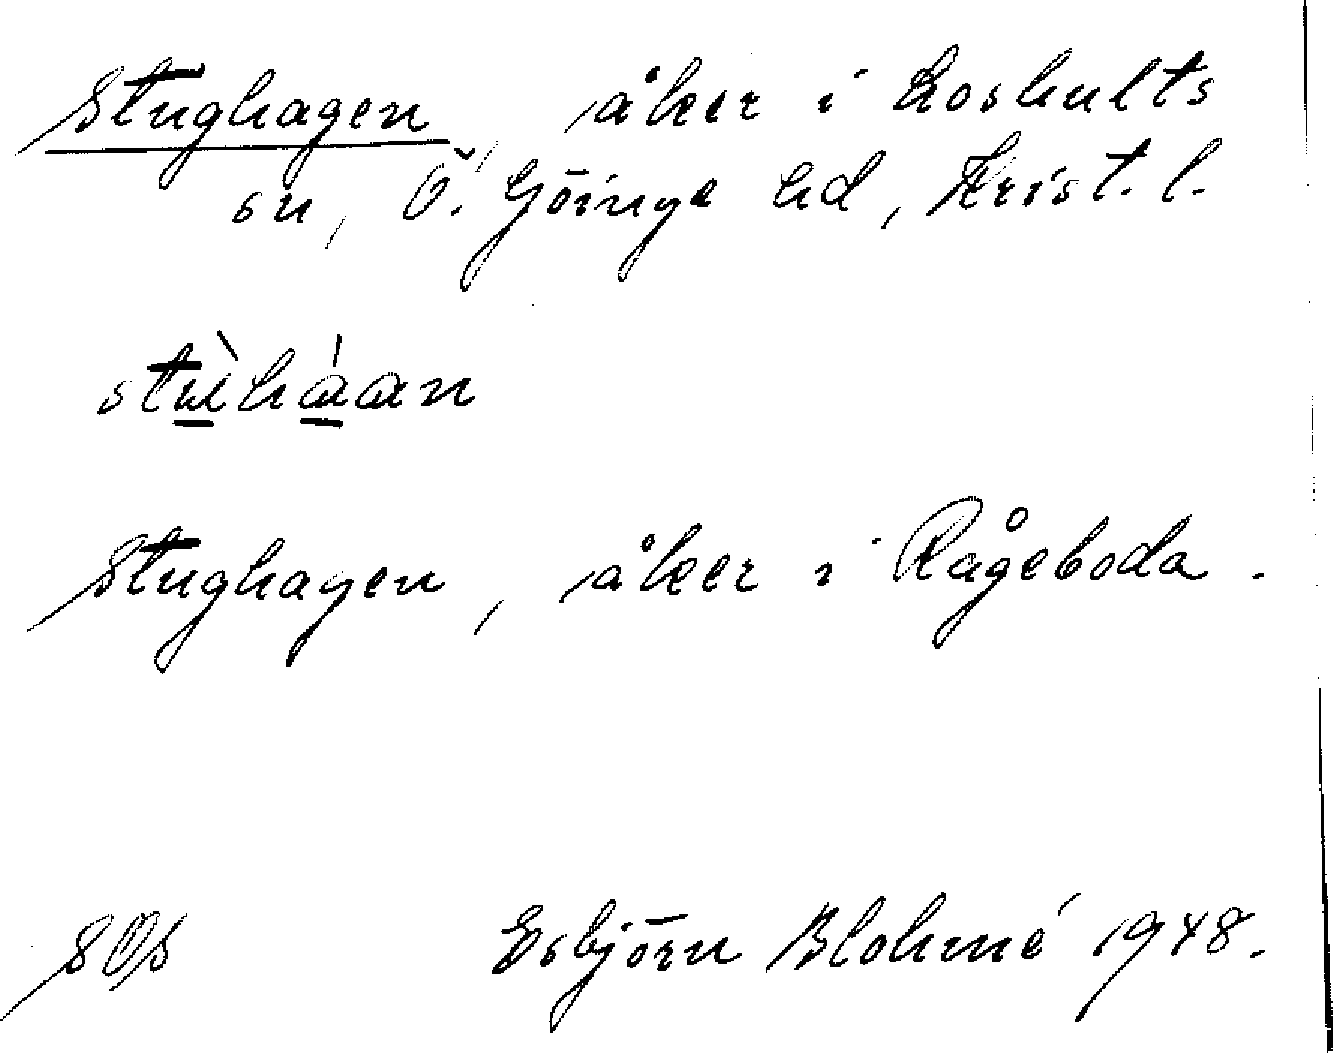 Stughagen, åker i Loshults
sn, Ö. Göinge hd, Krist. l.
stùhàan
Stughagen, åker i Rågeboda.
SOS Esbjörn Blohmé 1948.